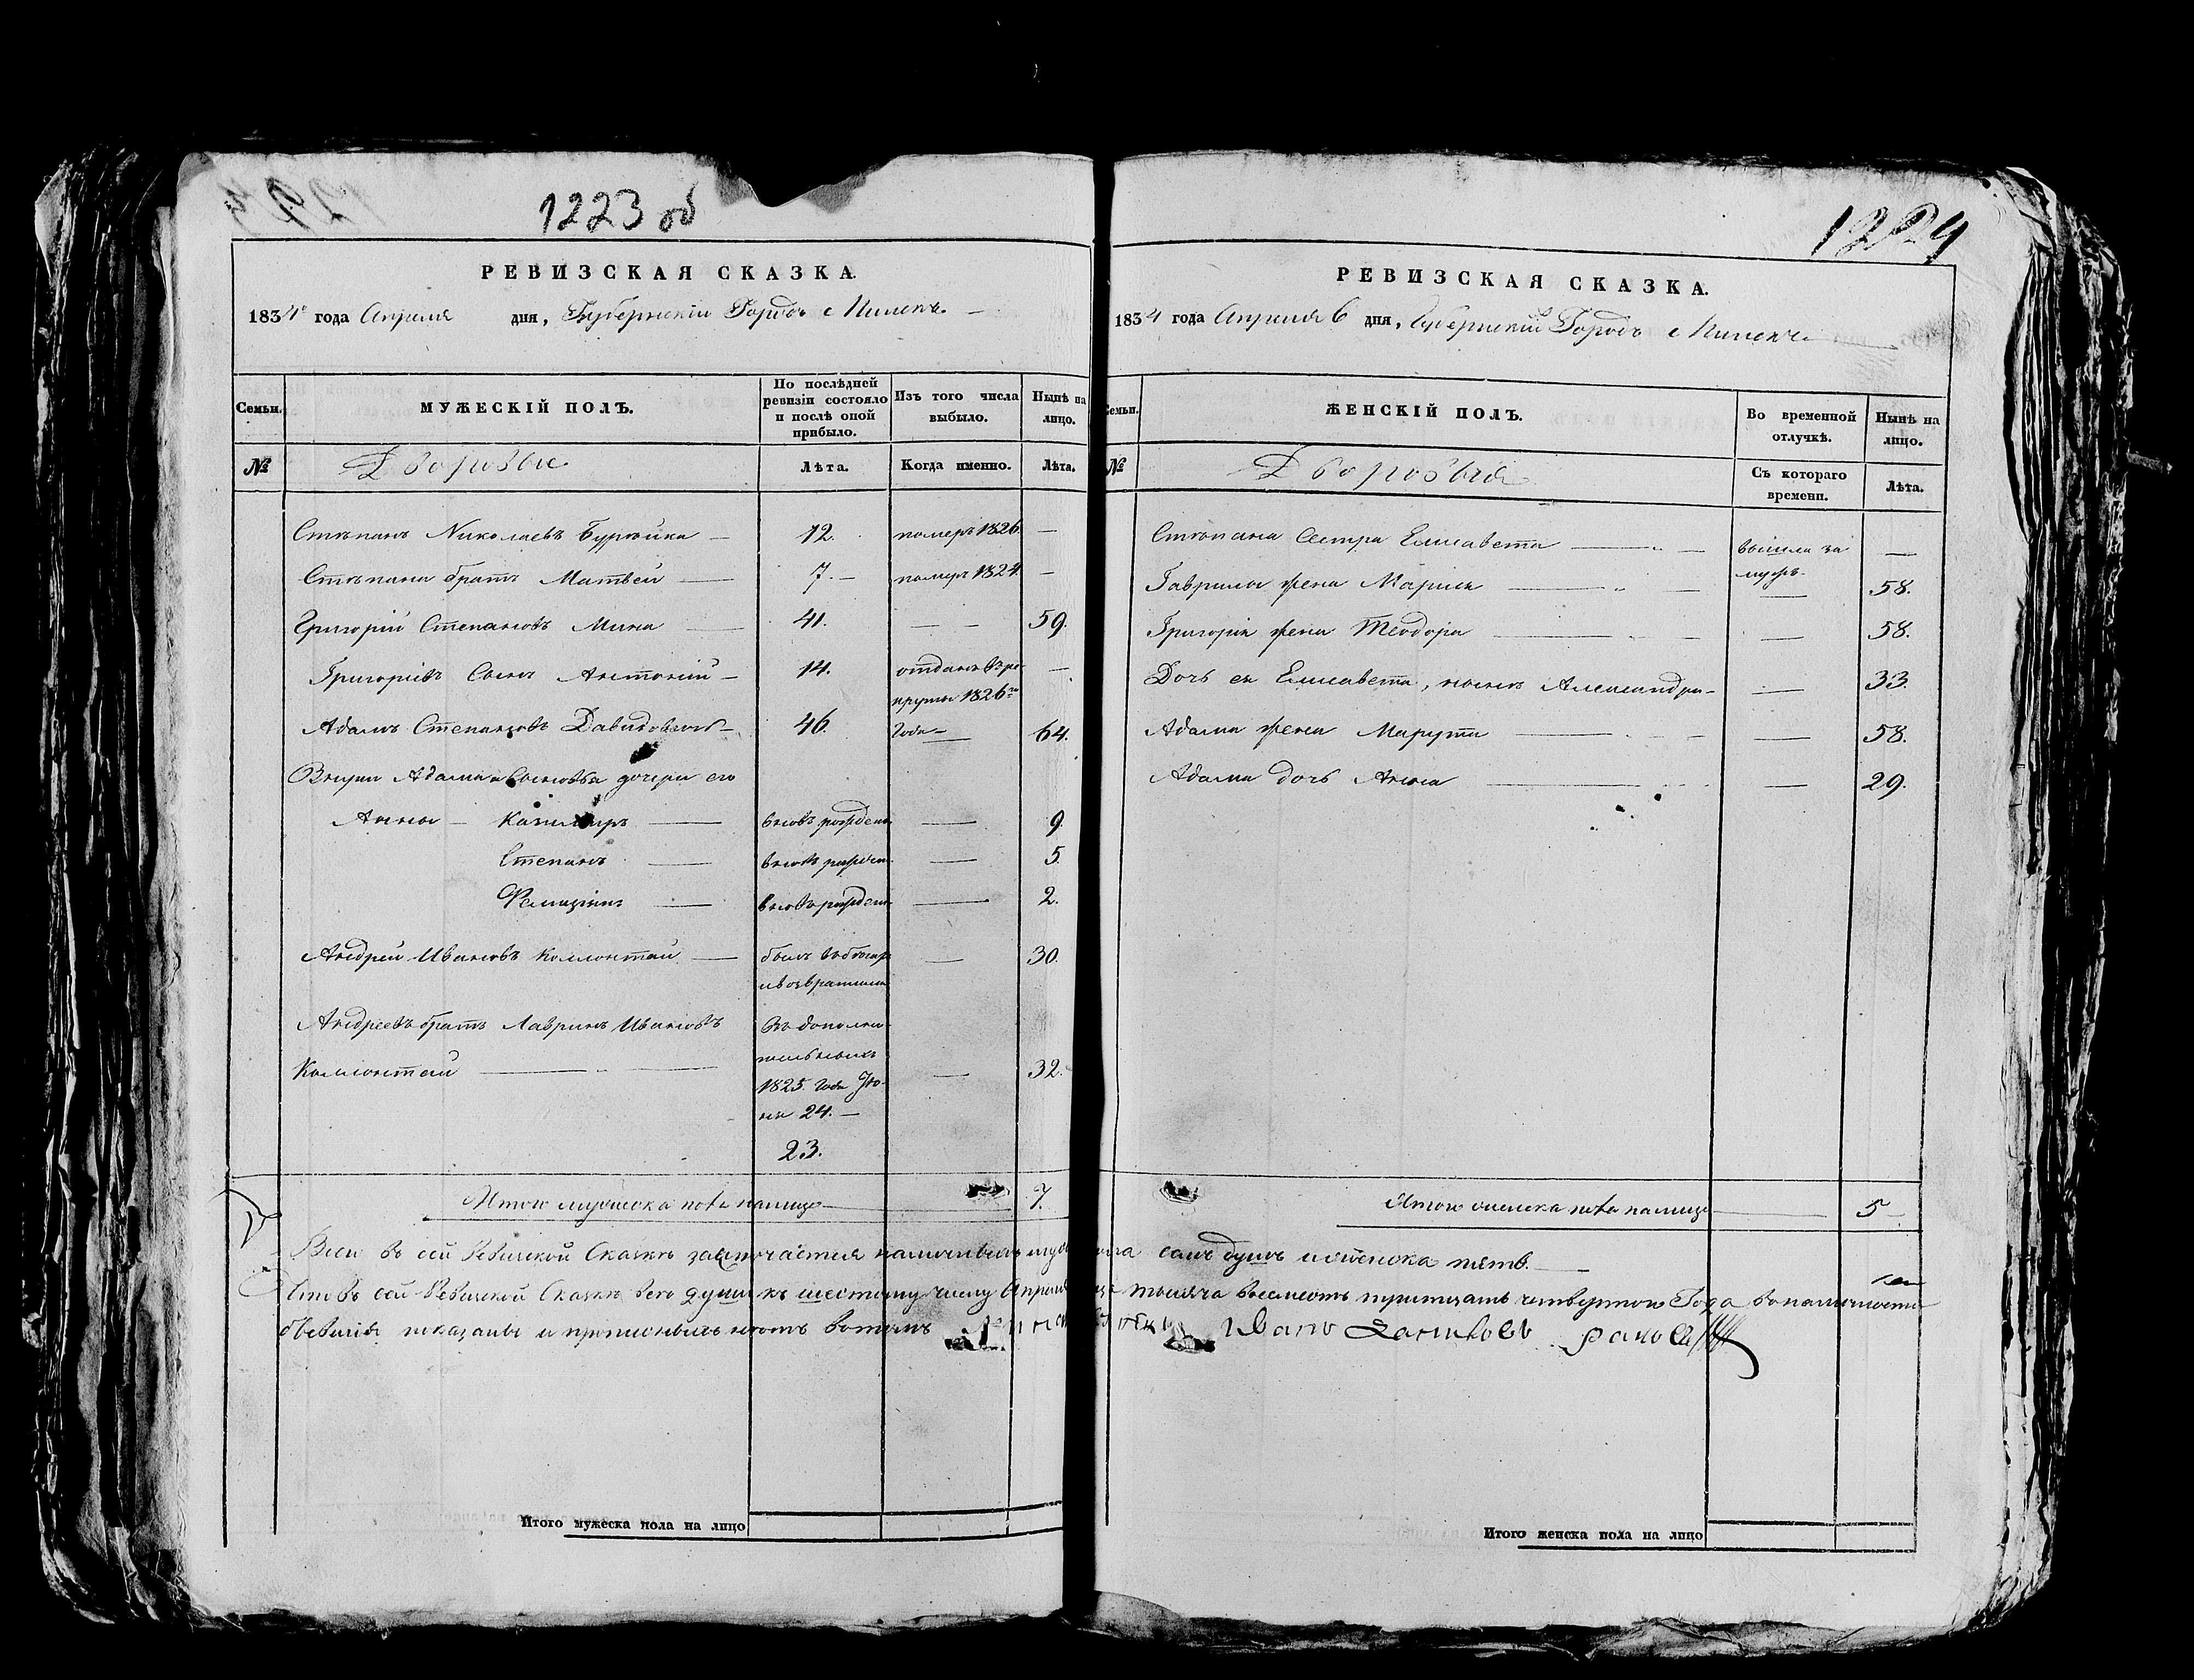 1223 об
РЕВИЗСКАЯ СКАЗКА.
1834 года Апреля дня, Губернскій Городъ Минскъ
Семьи.
МУЖЕСКІЙ ПОЛЪ.
По послѣдней ревизіи состояло и послѣ оной прибыло.
Изъ того числа выбыло.
Нынѣ на лицо.
№
Дворовые
Лѣта.
Когда именно.
Лѣта.
Стѣпанъ Николаевъ — 12. померъ 1826. —
Стѣпана братъ Матвей — 7. — померъ 1824. —
Григорій Степановъ Мина — 41. — — 59.
Григоріевъ Сынъ Антоній — 14. отданъ въ ре- —
круты 1826го
Адамъ Степановъ Давидовичъ — 46. Года — 64.
Внуки Адама Сыновья дочери его
Анны — Казимиръ — вновь рожденъ — 9.
Степанъ — вновь рожден — 5.
Фелиціянъ — вновь рожден — 2.
Андрей Ивановъ Коллонтай — былъ въ бѣгах — 30.
и возвратился
Андреевъ братъ Лавринъ Ивановъ Въ дополни-
Коллонтай — тельныхъ — 32.
1825. года Ію-
ня 24. —
23.
Итого мужеска пола на лицо — 7.
1224
РЕВИЗСКАЯ СКАЗКА.
1834 года Апреля 6 дня, Губернскій Городъ Минскъ
Семьи.
ЖЕНСКІЙ ПОЛЪ.
Во временной отлучкѣ.
Нынѣ на лицо.
№
Дворовыя
Съ котораго времени.
Лѣта.
Стѣпана Сестра Елисавета — вышла за —
мужъ
Гаврилы жена Марья — 58.
Григорія жена Теодора — — 58.
Дочь ея Елисавета, нынѣ Александра — — 33.
Адама жена Марута — — 58.
Адама дочь Анна — — 29.
Итого женска пола на лицо — 5
Всего въ сей Ревизской Сказкѣ заключается наличныхъ мужеска семь душъ и женска пять.
Что въ сей Ревизской Сказкѣ всѣ души къ шестому числу Апреля тысяча восемьсотъ тритцать четвертого Года въ наличности
показаны и прописныхъ нѣтъ въ томъ
Итого мужеска пола на лицо
Итого женска пола на лицо